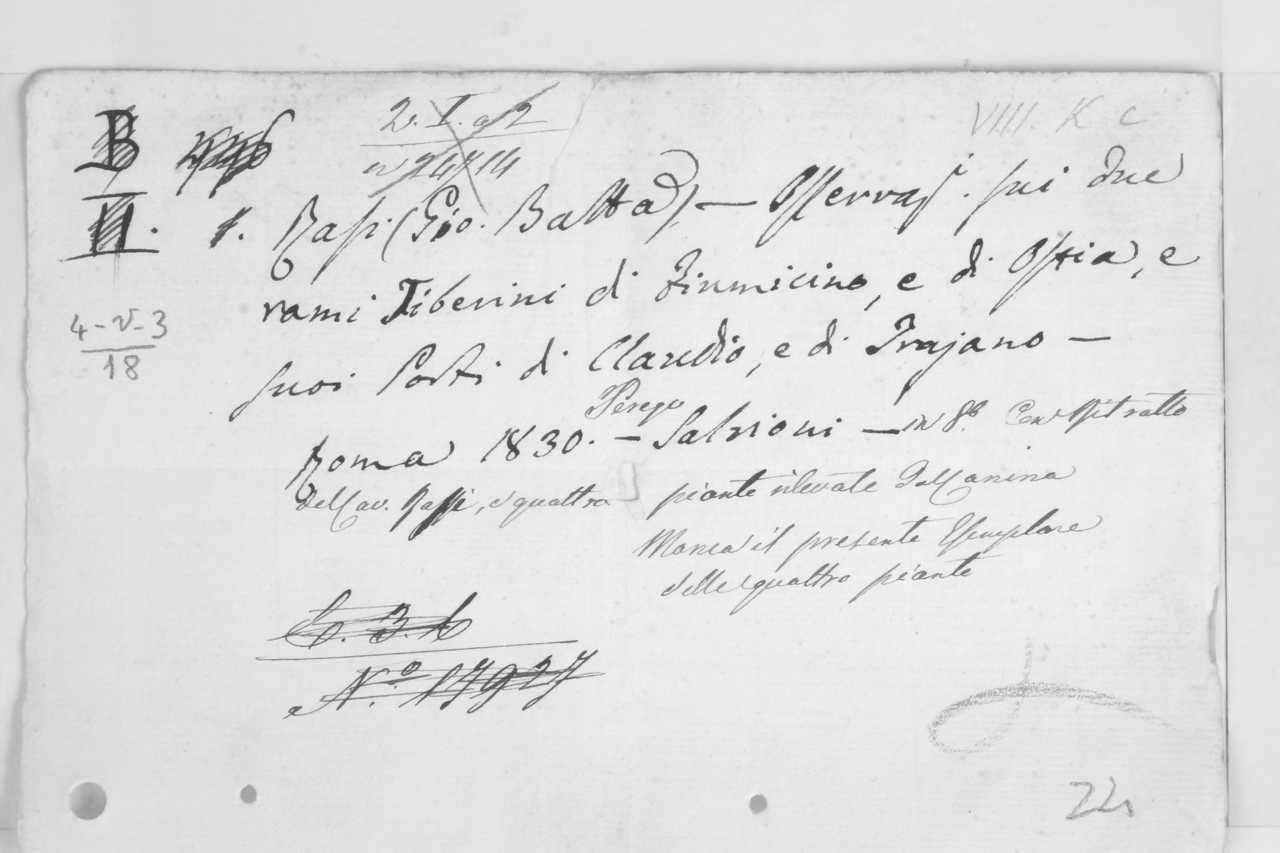 B
II.
2. I. g 2
n 24814
VIII. K c
1. Rasi (Gio. Batta) — Osservaz. sui due
rami Tiberini di Fiumicino, e di Ostia, e
suoi Porti di Claudio, e di Trajano —
Roma 1830. — Perego Salvioni — in 8.º Con Ritratto
del Cav. Rasi, e quattro piante rilevate dal Canina
Manca il presente Esemplare
delle quattro piante
4-V-3
18
E. 3. b
N.º 17927
22